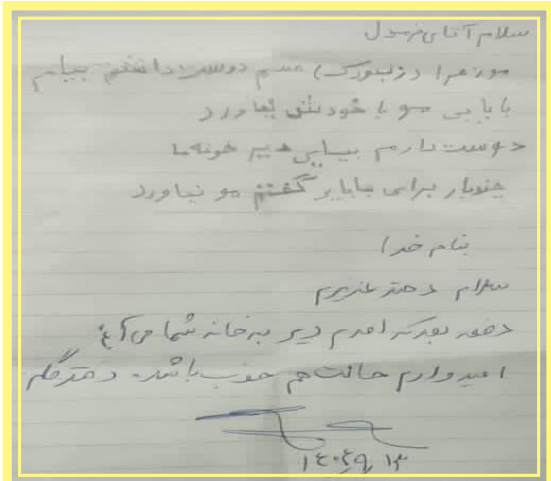 سلام آقای فرسول
موزهرا (زنبورک) هسم دوست داشتم بیام
بابایی مو با خودش نیاورد
دوست دارم بیایی دیر خونه ما
چندبار برای بابایر گفتم مو نیاورد
بنام خدا
سلام دختر عزیزم
دفعه بعد که آمدم دیر به خانه شما می آیم
امیدوارم حالت هم خوب باشد. دختر گلم
۱۴۰۴/۹/۱۳